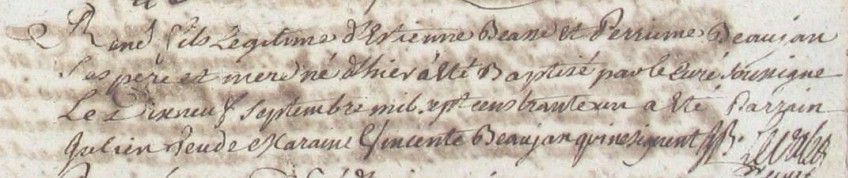 René fils Legitime d'Estienne Beane et Perrinne Beaujan
Ses pere et mere né d'hier a été Baptisé par le Curé soussigne
Le Dixneuf Septembre mil sept cens trante un a été Parrain
Julien Maraine Vincente Beaujan qui ne signent